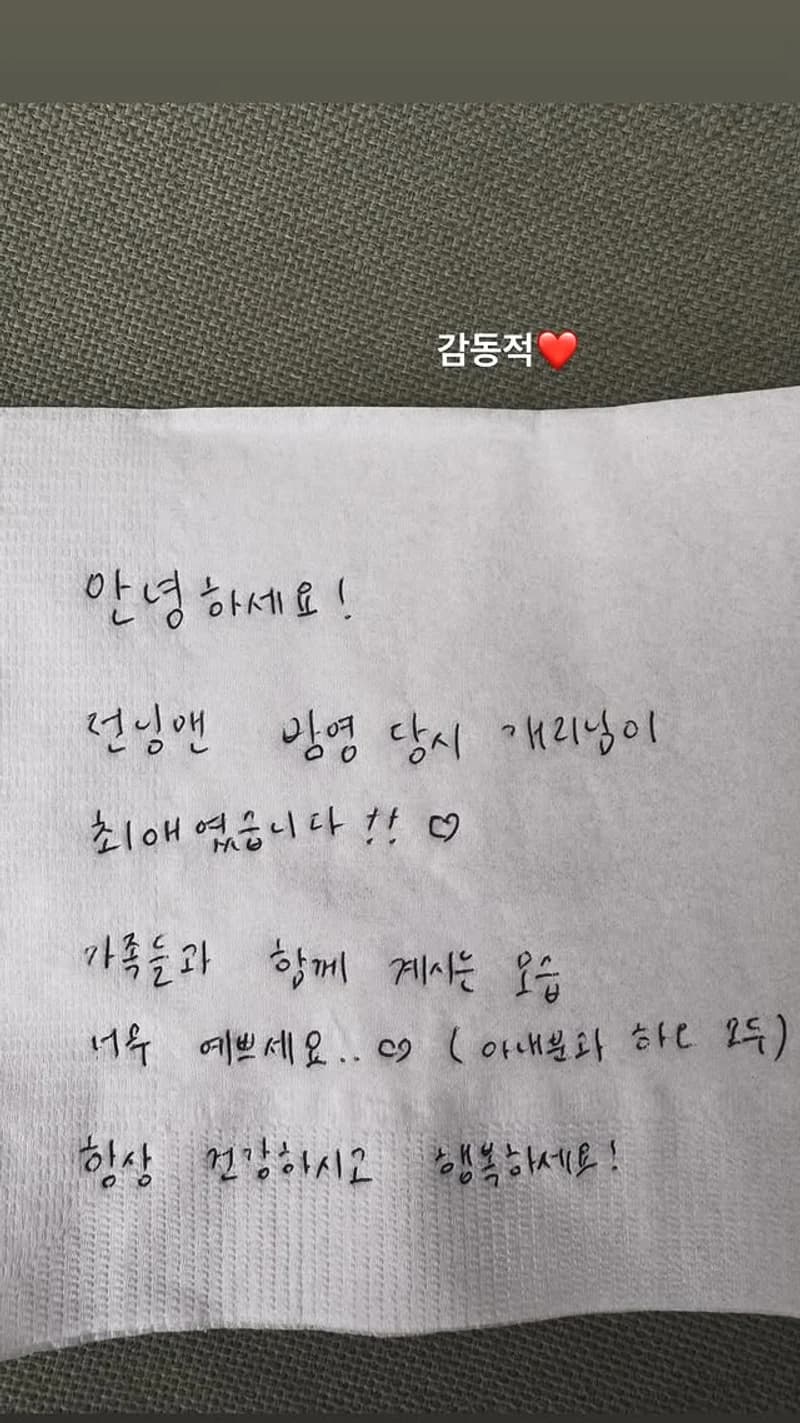 감동적❤️
안녕하세요!
런닝맨 방영 당시 개리님이
최애였습니다!! ♡
가족들과 함께 계시는 모습
너무 예쁘세요.. ♡ (아내분과 하오 모두)
항상 건강하시고 행복하세요!